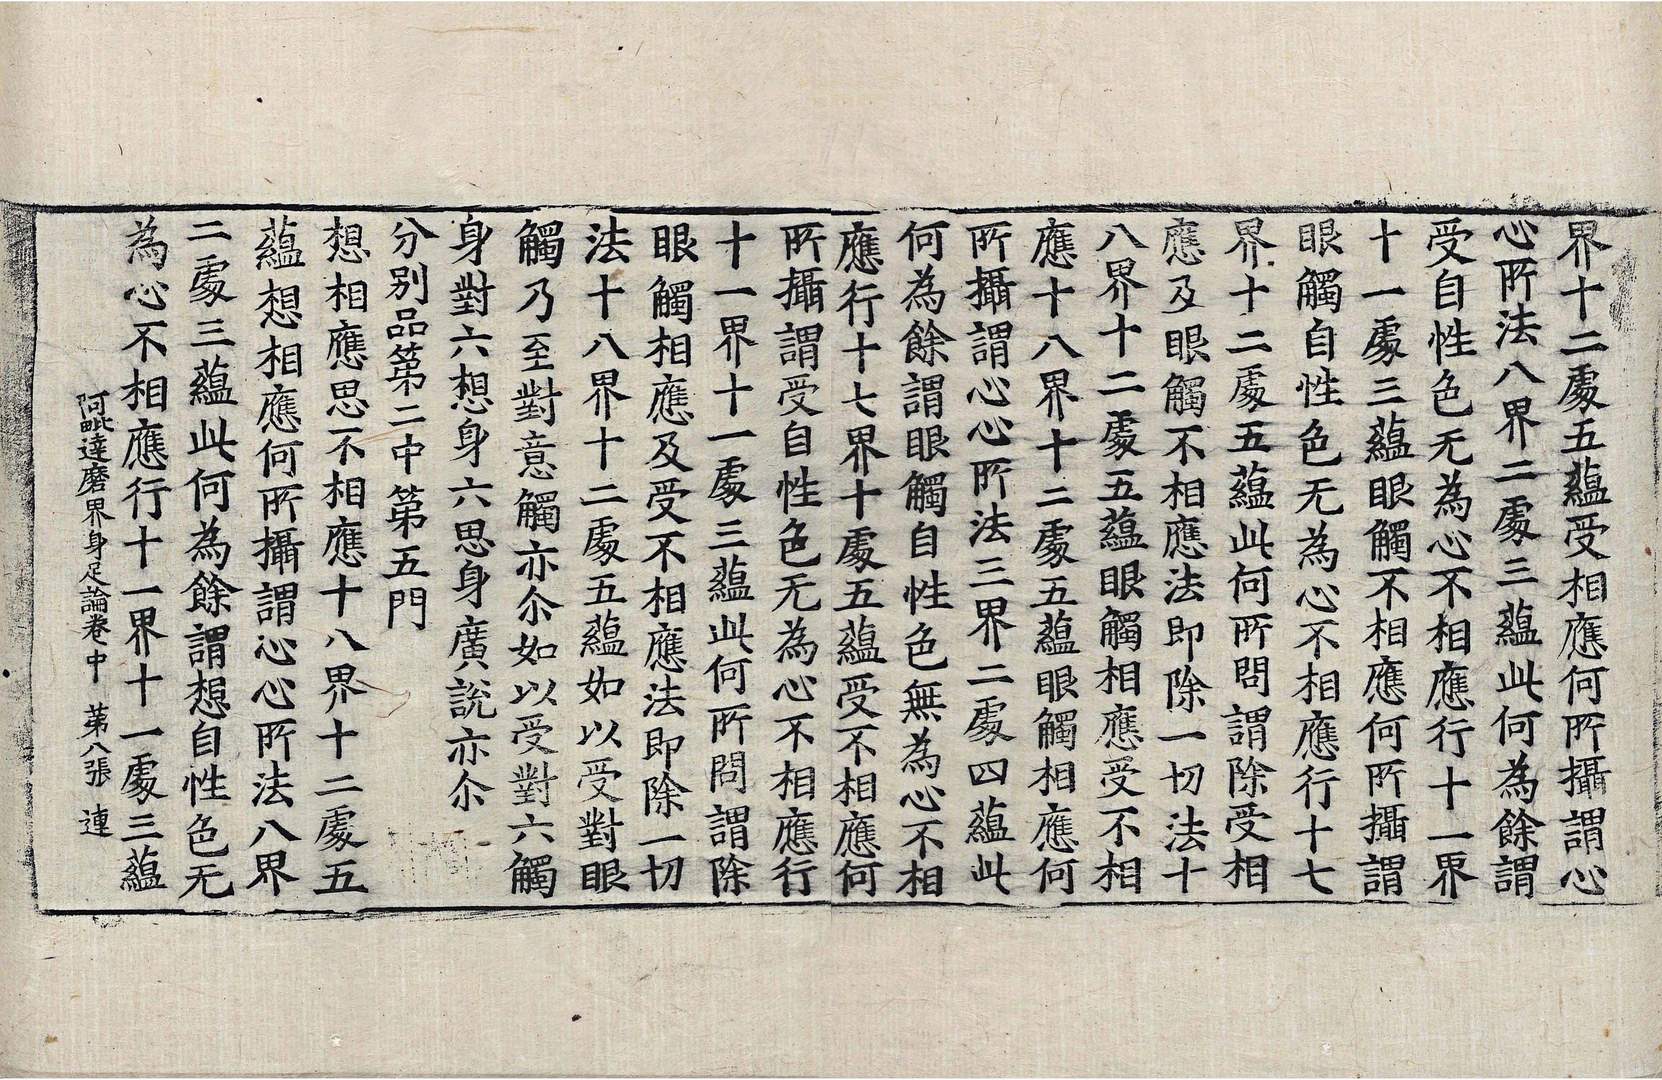 界十二處五蘊受相應何所攝謂心
心所法八界二處三蘊此何為餘謂
受自性色无為心不相應行十一界
十一處三蘊眼觸不相應何所攝謂
眼觸自性色无為心不相應行十七
界十二處五蘊此何所問謂除受相
應及眼觸不相應法即除一切法十
八界十二處五蘊眼觸相應受不相
應十八界十二處五蘊眼觸相應何
所攝謂心心所法三界二處四蘊此
何為餘謂眼觸自性色無為心不相
應行十七界十處五蘊受不相應何
所攝謂受自性色无為心不相應行
十一界十一處三蘊此何所問謂除
眼觸相應及受不相應法即除一切
法十八界十二處五蘊如以受對眼
觸乃至對意觸亦尒如以受對六觸
身對六想身六思身廣說亦尒
分別品第二中第五門
想相應思不相應十八界十二處五
蘊想相應何所攝謂心心所法八界
二處三蘊此何為餘謂想自性色无
為心不相應行十一界十一處三蘊
阿毗達磨界身足論卷中 第八張 連